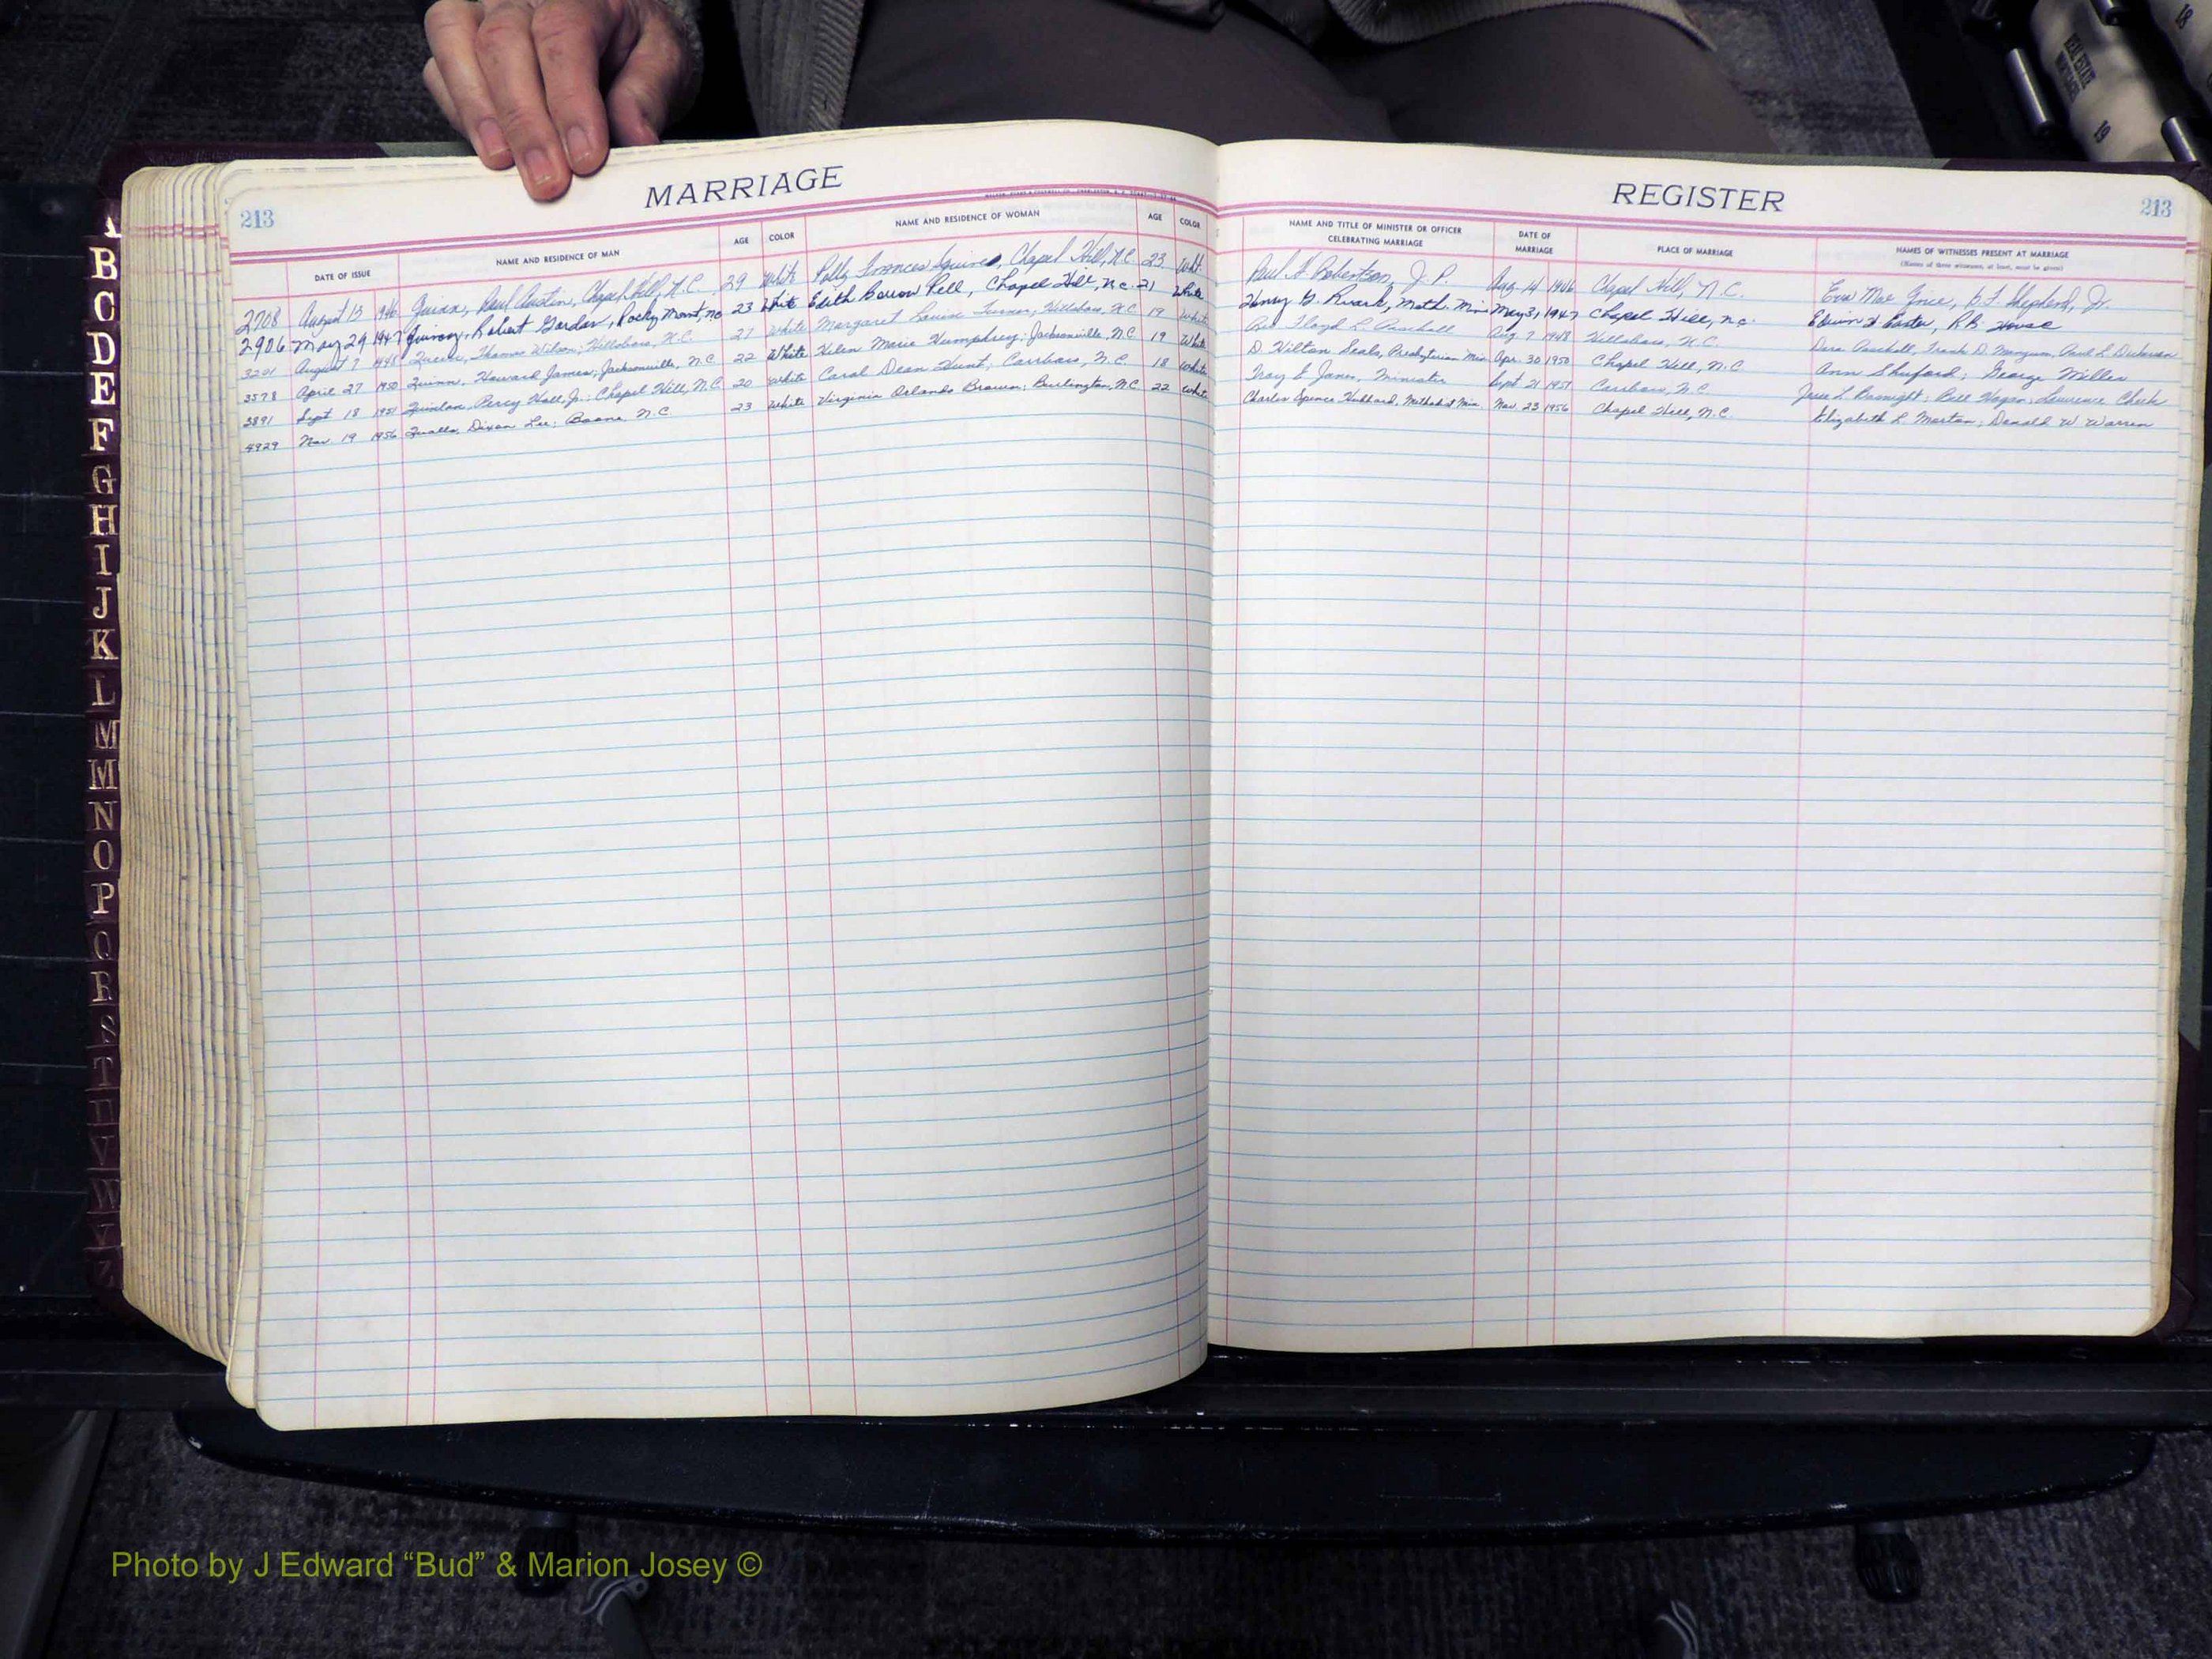 MARRIAGE
213
DATE OF ISSUE NAME AND RESIDENCE OF MAN AGE COLOR NAME AND RESIDENCE OF WOMAN AGE COLOR
2708 August 13 1946 Quinn, Paul Austin, Chapel Hill, N.C. 29 White Polly Frances Squires, Chapel Hill, N.C. 23 Wht.
2906 May 29 1947 Quincy, Robert Gordon, Rocky Mont, nc 23 White Edith Barrow Pell, Chapel Hill, n.c. 21 White
3201 August 7 1948 Thomas Wilson; Hillsboro, N.C. 21 White Margaret Louise Turner, Hillsboro, N.C. 19 White
3578 April 27 1950 Quinn, Howard James; Jacksonville, N.C. 22 White Helen Marie Humphrey; Jacksonville, N.C. 19 White
3891 Sept 18 1951 Quinlan, Percy Hall, Jr.; Chapel Hill, N.C. 20 White Carol Dean Hunt; Carrboro, N.C. 18 White
4929 Nov. 19 1956 Qualls, Dixon Lee; Boone, N.C. 23 White Virginia Orlando Brown; Burlington, N.C. 22 White
REGISTER
213
NAME AND TITLE OF MINISTER OR OFFICER CELEBRATING MARRIAGE DATE OF MARRIAGE PLACE OF MARRIAGE NAMES OF WITNESSES PRESENT AT MARRIAGE
(Names of three witnesses, at least, must be given)
Paul H. Robertson, J.P. Aug. 14 1946 Chapel Hill, N.C. Eva Mae Grice, B.F. Shepherd, Jr.
Henry G. Ruark, Meth. Min May 31 1947 Chapel Hill, n.c. Edwin R.B. House
Rev. Floyd L. Paschall Aug. 7 1948 Hillsboro, N.C. Dora Paschall, Frank D. Mangum, Paul L. Dickerson
D. Hilton Seals, Presbyterian Min. Apr. 30 1950 Chapel Hill, N.C. Ann Shuford; George Miller
Troy E. Jones, Minister Sept. 21 1951 Carrboro, N.C. Jesse L. Basnight; Bill Hogan; Lawrence Cheek
Charles Spence Hubbard, Methodist Min. Nov. 23 1956 Chapel Hill, N.C. Elizabeth L. Morton; Donald W. Warren
B
C
D
E
F
G
H
I
J
K
L
M
M
N
O
P
Q
R
S
T
U
V
W
Z
REAL ESTATE
18
19
Photo by J Edward “Bud” & Marion Josey ©